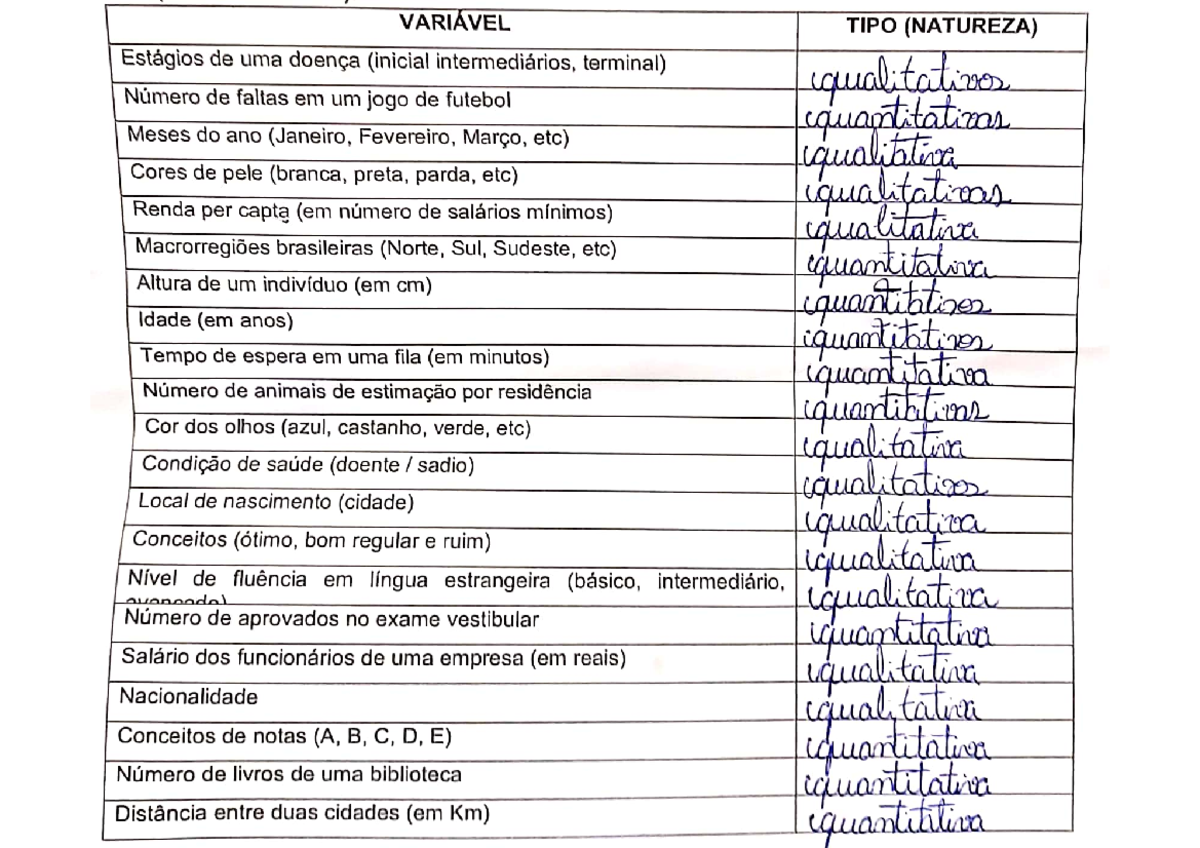 VARIÁVEL TIPO (NATUREZA)
Estágios de uma doença (inicial intermediários, terminal) qualitativos
Número de faltas em um jogo de futebol quantitativas
Meses do ano (Janeiro, Fevereiro, Março, etc) qualitativa
Cores de pele (branca, preta, parda, etc) qualitativas
Renda per capta (em número de salários mínimos) qualitativa
Macrorregiões brasileiras (Norte, Sul, Sudeste, etc) quantitativa
Altura de um indivíduo (em cm) quantitativos
Idade (em anos) quantitativos
Tempo de espera em uma fila (em minutos) quantitativa
Número de animais de estimação por residência quantitativas
Cor dos olhos (azul, castanho, verde, etc) qualitativa
Condição de saúde (doente / sadio) qualitativos
Local de nascimento (cidade) qualitativa
Conceitos (ótimo, bom regular e ruim) qualitativa
Nível de fluência em língua estrangeira (básico, intermediário, qualitativa
avançado)
Número de aprovados no exame vestibular quantitativa
Salário dos funcionários de uma empresa (em reais) qualitativa
Nacionalidade qualitativa
Conceitos de notas (A, B, C, D, E) quantitativa
Número de livros de uma biblioteca quantitativa
Distância entre duas cidades (em Km) quantititiva